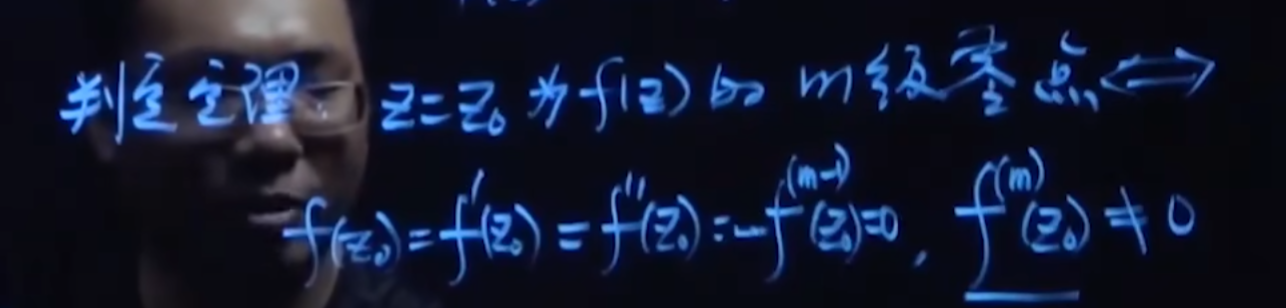 判定定理: z=z₀ 为 f(z) 的 m 级零点 ⟺
f(z₀)=f′(z₀)=f″(z₀)=…f⁽ᵐ⁻¹⁾(z₀)=0, f⁽ᵐ⁾(z₀)≠0